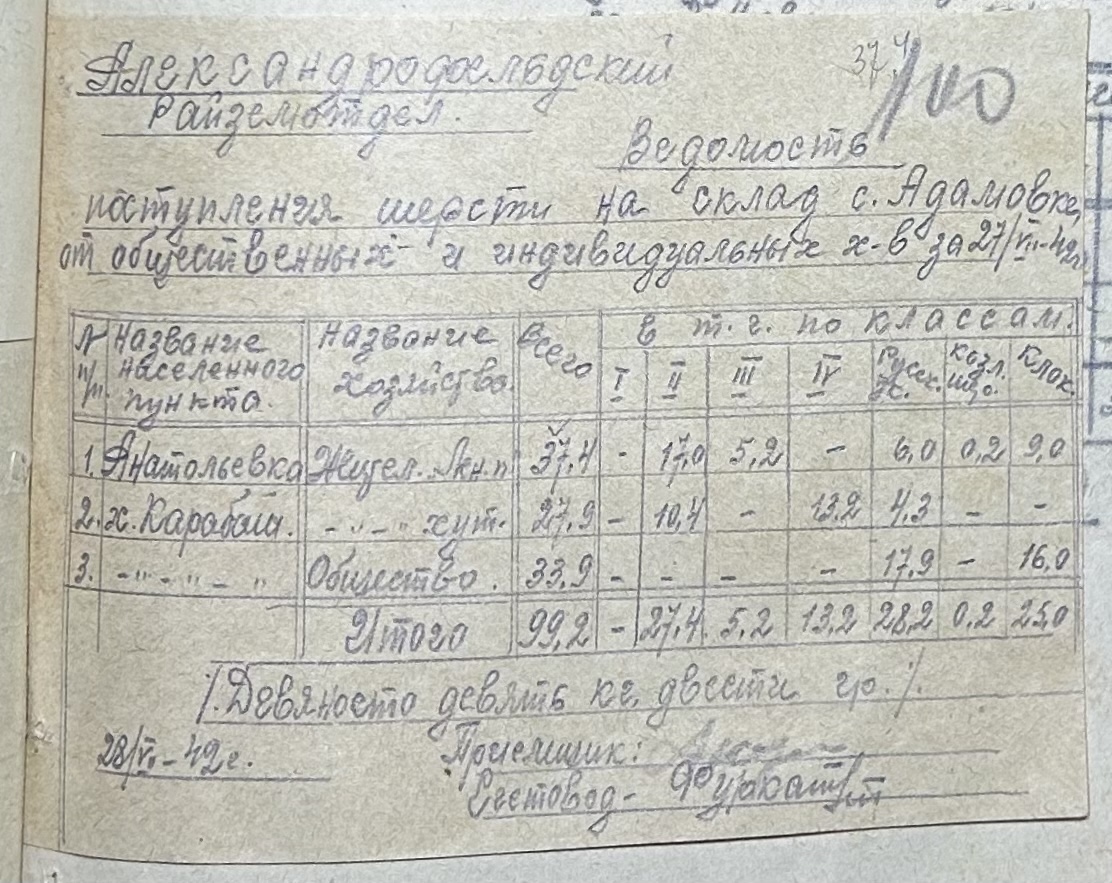 37,4
100
Александродосльдский
Райземотдел.
Ведомость
поступления шерсти на склад с. Адамовке,
от общественных и индивидуальных х-в за 27/VII-42г.
№ п/п. Название населенного пункта. Название хозяйства. Всего В т. г. по классам.
I II III IV Русск. Ж. Козл. шо. Клок.
1. Анатольевка 37,4 - 17,0 5,2 - 6,0 0,2 9,0
2. х. Карабаш. - " - " хут. 27,9 - 10,4 - 13,2 4,3 - -
3. - " - " - " Общество. 33,9 - - - - 17,9 - 16,0
Итого 99,2 - 27,4 5,2 13,2 28,2 0,2 25,0
/. Девяносто девять кг. двести гр. /.
28/VII-42г. Приемщик: